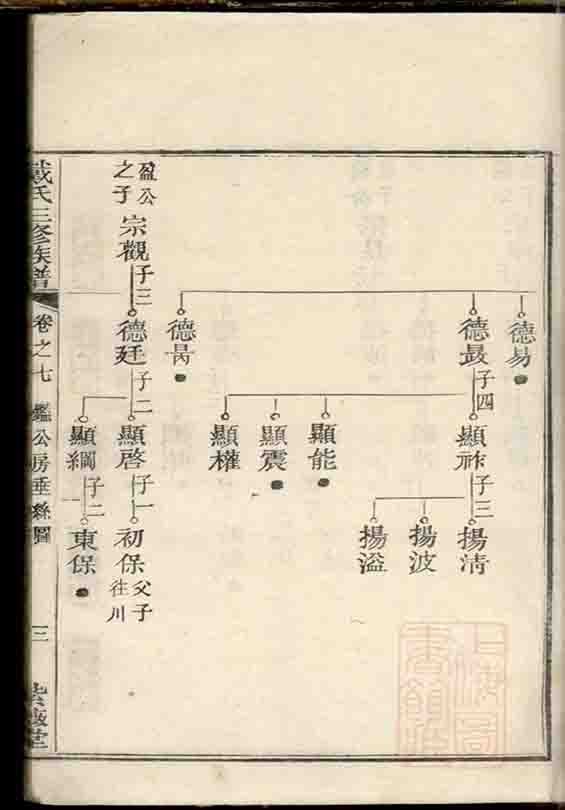 德易
德最
子四
顯祚
子三
揚清
揚波
揚溢
顯能
顯震
顯權
德昺
盈公之子
宗觀
子三
德廷
子二
顯啓
子一
初保
父子往川
顯綱
子二
東保
戴氏三修族譜
卷之七
鑑公房垂絲圖
三